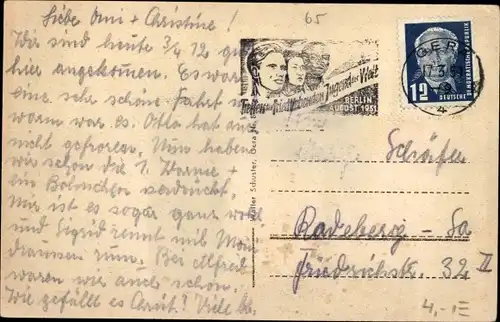 Liebe Omi + Christine!
Wir sind heute 3/4 12 gut
hier angekommen. Es war
eine sehr schöne Fahrt
warm war es. Otto hat
nicht gefroren. Nun haben
wir schon die 1. Wärme +
ein verdrückt.
Mir ist es sogar ganz
und Sigrid rennt mit
draussen rum. Bei Alfred
waren wir auch schon.
Wie gefällt es Christ? Viele
65
Treffen der friedliebenden Jugend der Welt
BERLIN
AUGUST 1951
GERA
17.3.51
4
12
DEUTSCHE
DEMOKRATISCHE REPUBLIK
Schäfer
Radeberg - Sa
Friedrichstr. 32 II
4,-
Schuster, Gera